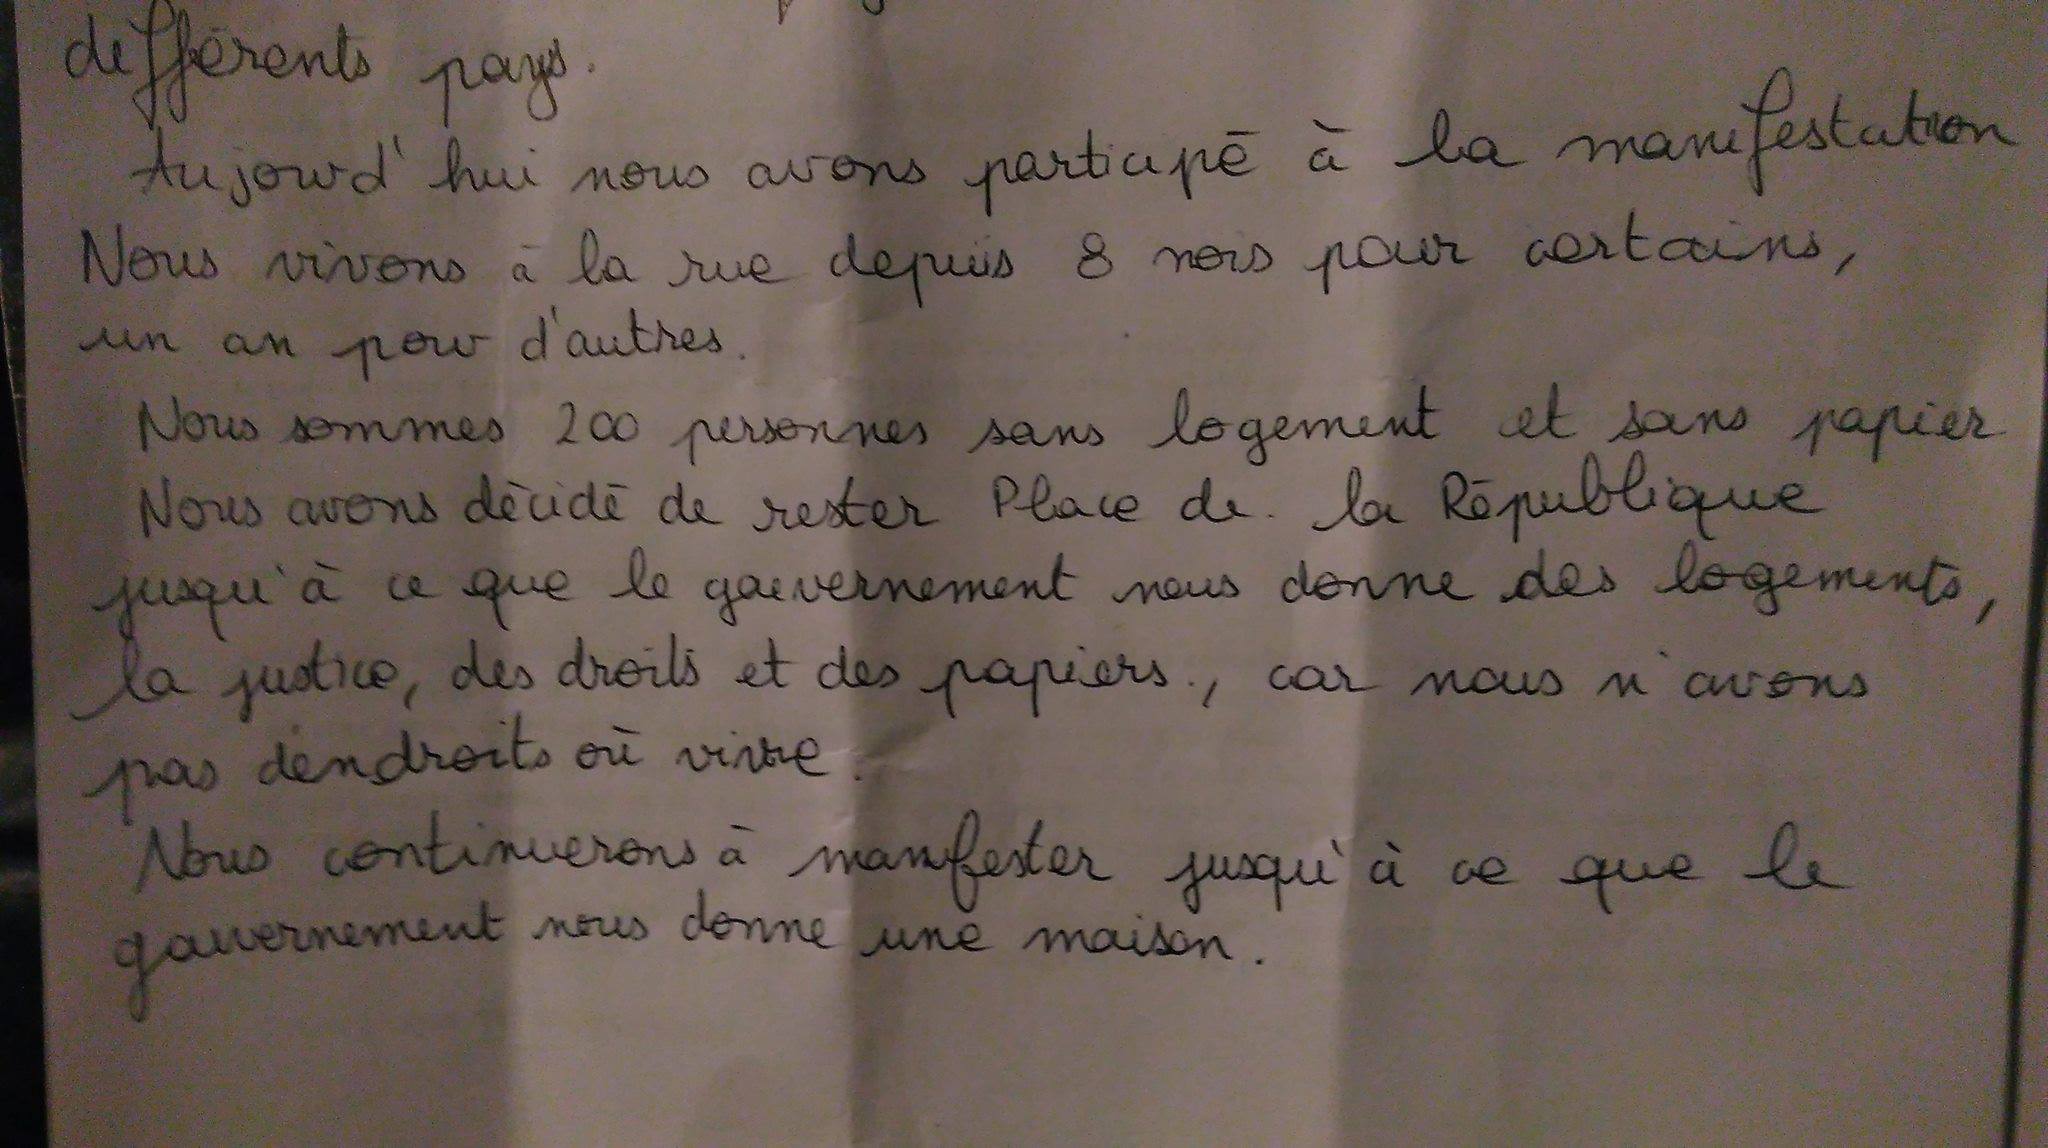 différents pays.
Aujourd'hui nous avons participé à la manifestation
Nous vivons à la rue depuis 8 mois pour certains,
un an pour d'autres.
Nous sommes 200 personnes sans logement et sans papier
Nous avons décidé de rester Place de la République
jusqu'à ce que le gouvernement nous donne des logements,
la justice, des droits et des papiers., car nous n'avons
pas d'endroits où vivre.
Nous continuerons à manifester jusqu'à ce que le
gouvernement nous donne une maison.